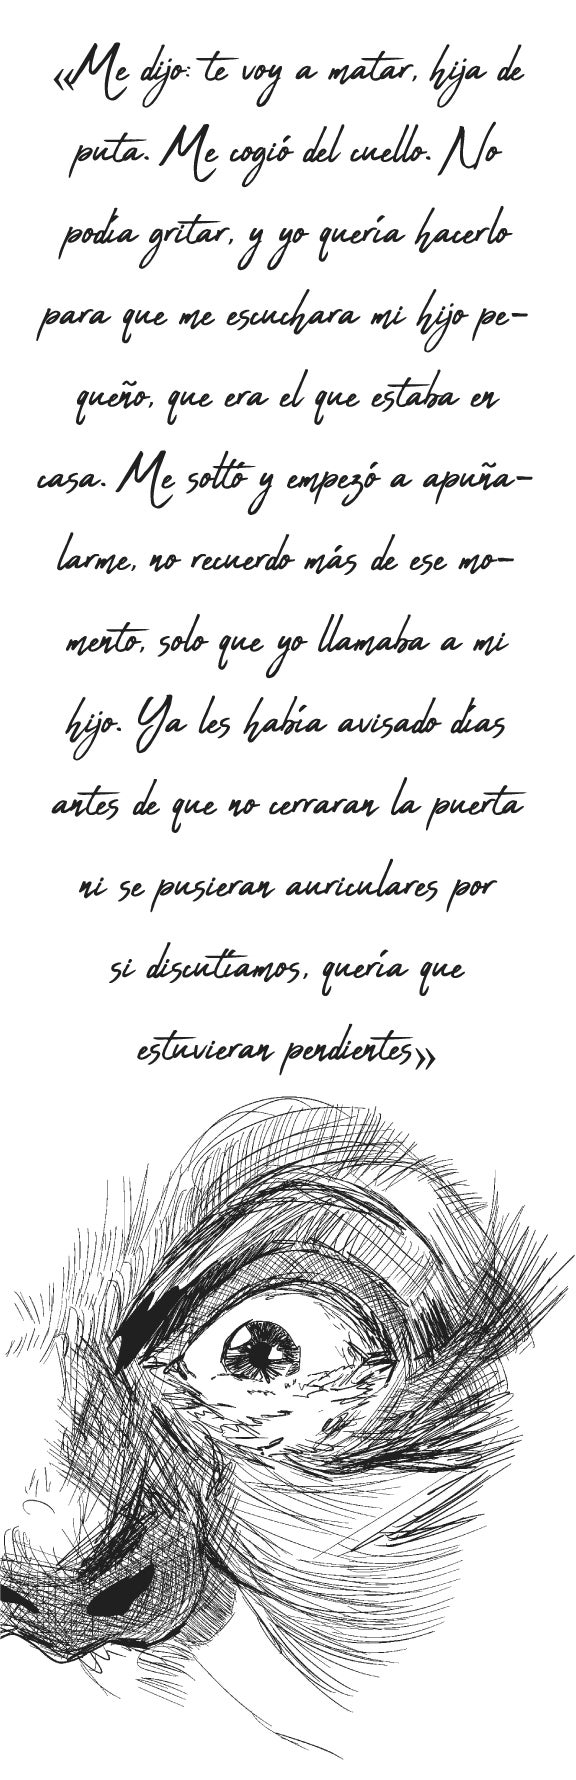 «Me dijo: te voy a matar, hija de
puta. Me cogió del cuello. No
podía gritar, y yo quería hacerlo
para que me escuchara mi hijo pe-
queño, que era el que estaba en
casa. Me soltó y empezó a apuña-
larme, no recuerdo más de ese mo-
mento, solo que yo llamaba a mi
hijo. Ya les había avisado días
antes de que no cerraran la puerta
ni se pusieran auriculares por
si discutíamos, quería que
estuvieran pendientes»